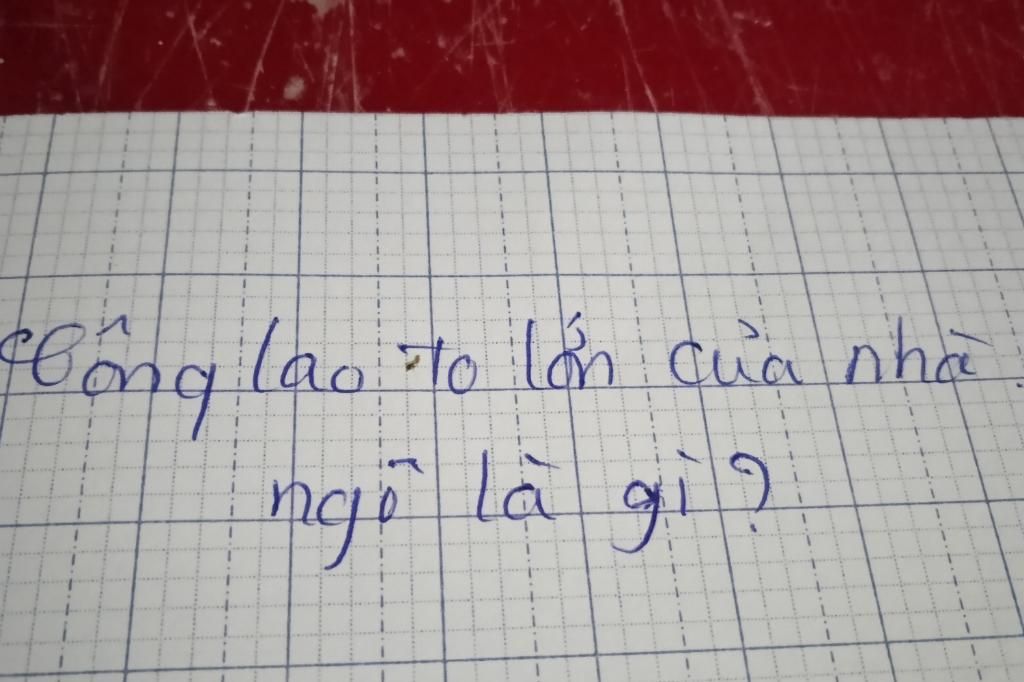 Công lao to lớn của nhà
ngô là gì?